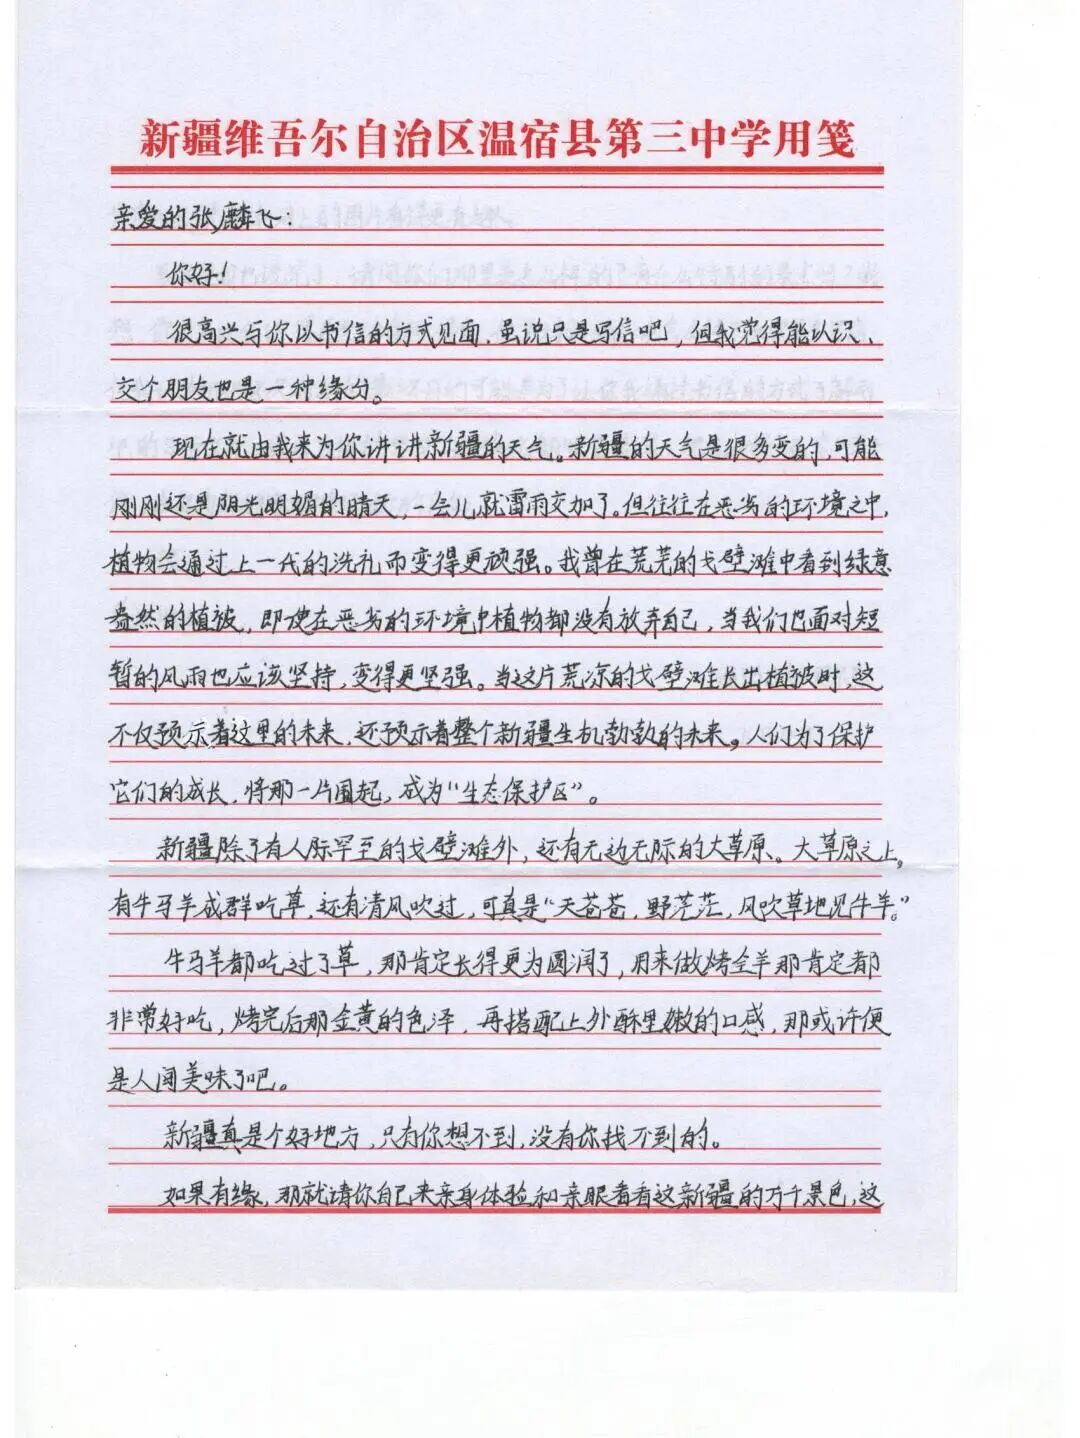 新疆维吾尔自治区温宿县第三中学用笺
亲爱的张麟飞:
你好!
很高兴与你以书信的方式见面,虽说只是写信吧,但我觉得能认识、
交个朋友也是一种缘分。
现在就由我来为你讲讲新疆的天气。新疆的天气是很多变的,可能
刚刚还是阳光明媚的晴天,一会儿就雷雨交加了。但往往在恶劣的环境之中,
植物会通过上一代的洗礼而变得更顽强。我曾在荒芜的戈壁滩中看到绿意
盎然的植被,即使在恶劣的环境中植物都没有放弃自己,当我们也面对短
暂的风雨也应该坚持,变得更坚强。当这片荒凉的戈壁滩长出植被时,这
不仅预示着这里的未来,还预示着整个新疆生机勃勃的未来。人们为了保护
它们的成长,将那一片围起,成为“生态保护区”。
新疆除了有人际罕至的戈壁滩外,还有无边无际的大草原。大草原之上,
有牛马羊成群吃草,还有清风吹过,可真是“天苍苍,野茫茫,风吹草地见牛羊。”
牛马羊都吃过了草,那肯定长得更为圆润了,用来做烤全羊那肯定都
非常好吃,烤完后那金黄的色泽,再搭配上外酥里嫩的口感,那或许便
是人间美味了吧。
新疆真是个好地方,只有你想不到,没有你找不到的。
如果有缘,那就请你自己来亲身体验和亲眼看看这新疆的万千景色,这